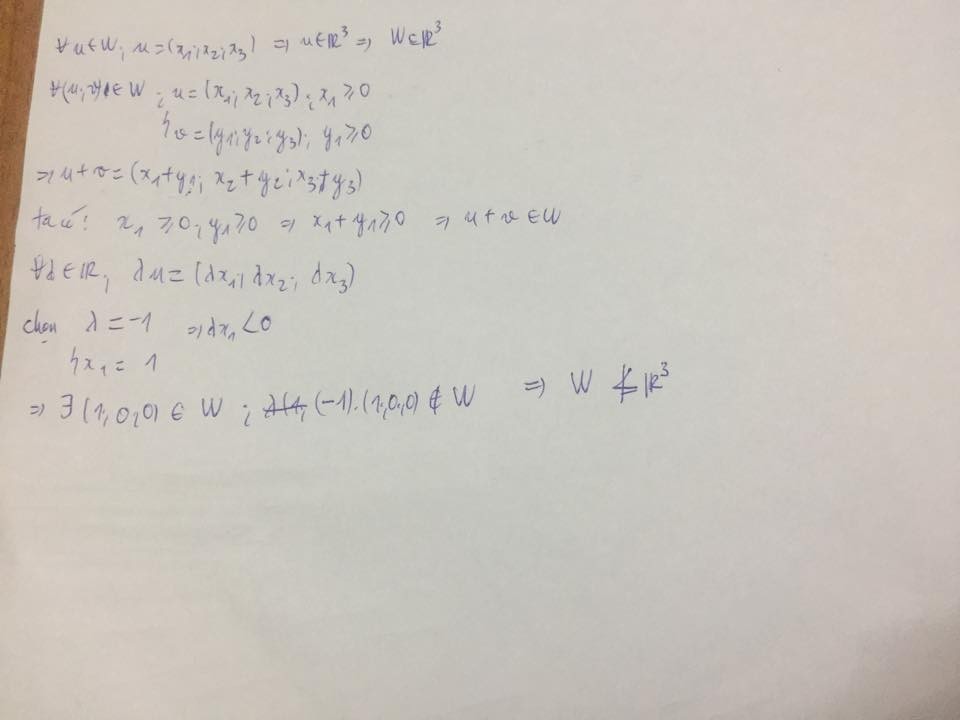 ∀u∈W; u=(x₁;x₂;x₃) ⇒ u∈ℝ³ ⇒ W⊆ℝ³
∀(u;v)∈W ; u=(x₁; x₂; x₃); x₁ ≥0
v=(y₁;y₂;y₃); y₁≥0
⇒ u+v=(x₁+y₁; x₂+y₂; x₃+y₃)
ta có: x₁ ≥0; y₁≥0 ⇒ x₁+y₁≥0 ⇒ u+v∈W
∀λ∈ℝ; λu=(λx₁; λx₂; λx₃)
chọn λ=-1 ⇒ λx₁<0
x₁= 1
⇒ ∃(1,0,0) ∈ W ; (-1).(1,0,0)∉W ⇒ W ≰ ℝ³